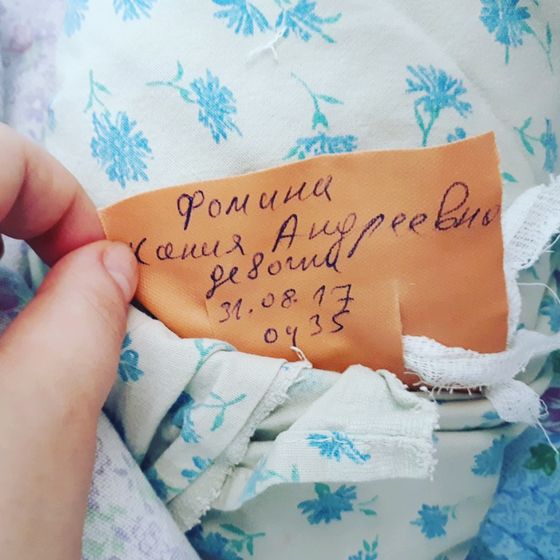 Фомина
Ксения Андреевна
девочка
31.08.17
04 35